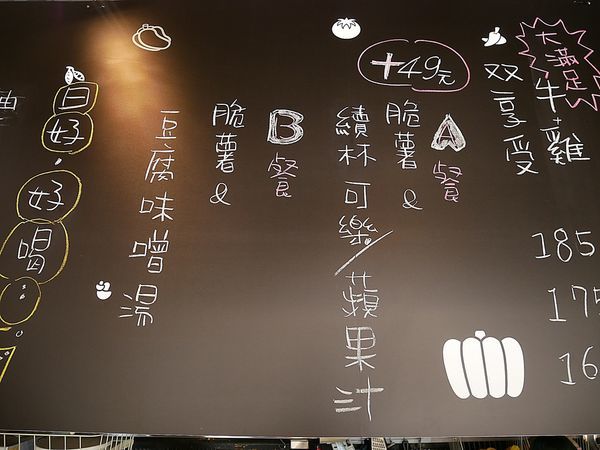 大滿足
牛+雞
雙享受
185
175
16
+49元
A餐
脆薯&
續杯可樂/蘋果汁
B餐
脆薯&
豆腐味噌湯
日好,
好喝